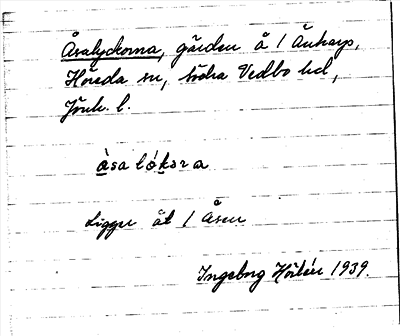 Åsalyckorna, gärden å 1 Änharp,
Höreda sn, Södra Vedbo hd,
Jönk. l.
àsa lókəra
Ligger åt 1 Åsen
Ingeborg Hörlén 1939.